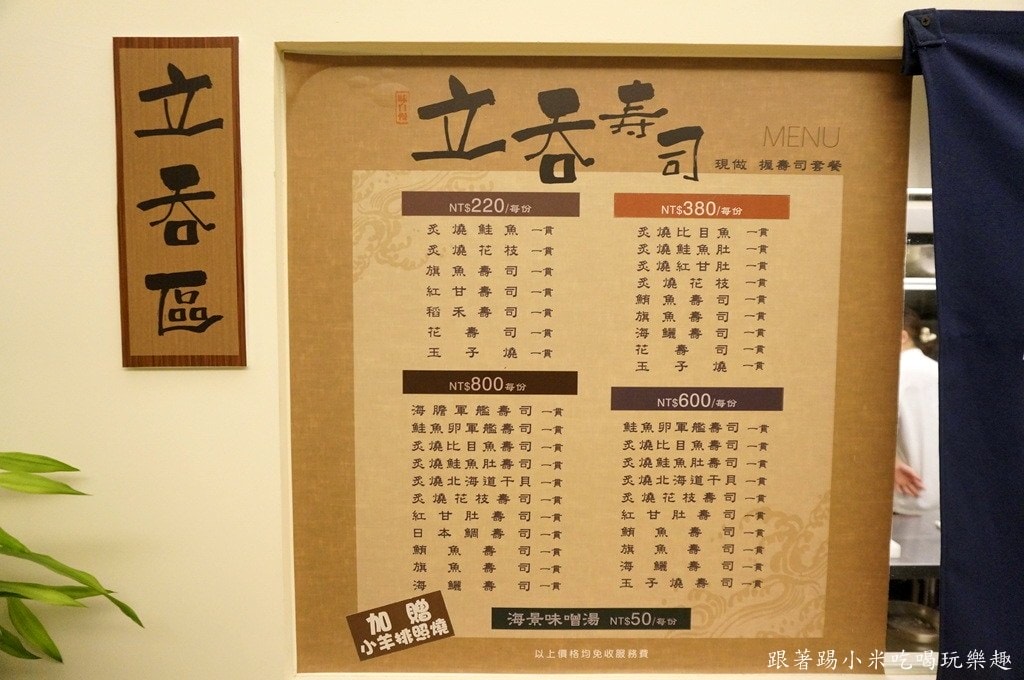 立吞區
味自慢
立吞壽司
MENU
現做 握壽司套餐
NT$220/每份
炙燒鮭魚 一貫
炙燒花枝 一貫
旗魚壽司 一貫
紅甘壽司 一貫
稻禾壽司 一貫
花壽司 一貫
玉子燒 一貫
NT$380/每份
炙燒比目魚 一貫
炙燒鮭魚肚 一貫
炙燒紅甘肚 一貫
炙燒花枝 一貫
鮪魚壽司 一貫
旗魚壽司 一貫
海鱺壽司 一貫
花壽司 一貫
玉子燒 一貫
NT$800每份
海膽軍艦壽司 一貫
鮭魚卵軍艦壽司 一貫
炙燒比目魚壽司 一貫
炙燒鮭魚肚壽司 一貫
炙燒北海道干貝 一貫
炙燒花枝壽司 一貫
紅甘肚壽司 一貫
日本鯛壽司 一貫
鮪魚壽司 一貫
旗魚壽司 一貫
海鱺壽司 一貫
NT$600/每份
鮭魚卵軍艦壽司 一貫
炙燒比目魚壽司 一貫
炙燒鮭魚肚壽司 一貫
炙燒北海道干貝 一貫
炙燒花枝壽司 一貫
紅甘肚壽司 一貫
鮪魚壽司 一貫
旗魚壽司 一貫
海鱺壽司 一貫
玉子燒壽司 一貫
加贈
小羊排照燒
海景味噌湯 NT$50/每份
以上價格均免收服務費
跟著踢小米吃喝玩樂趣